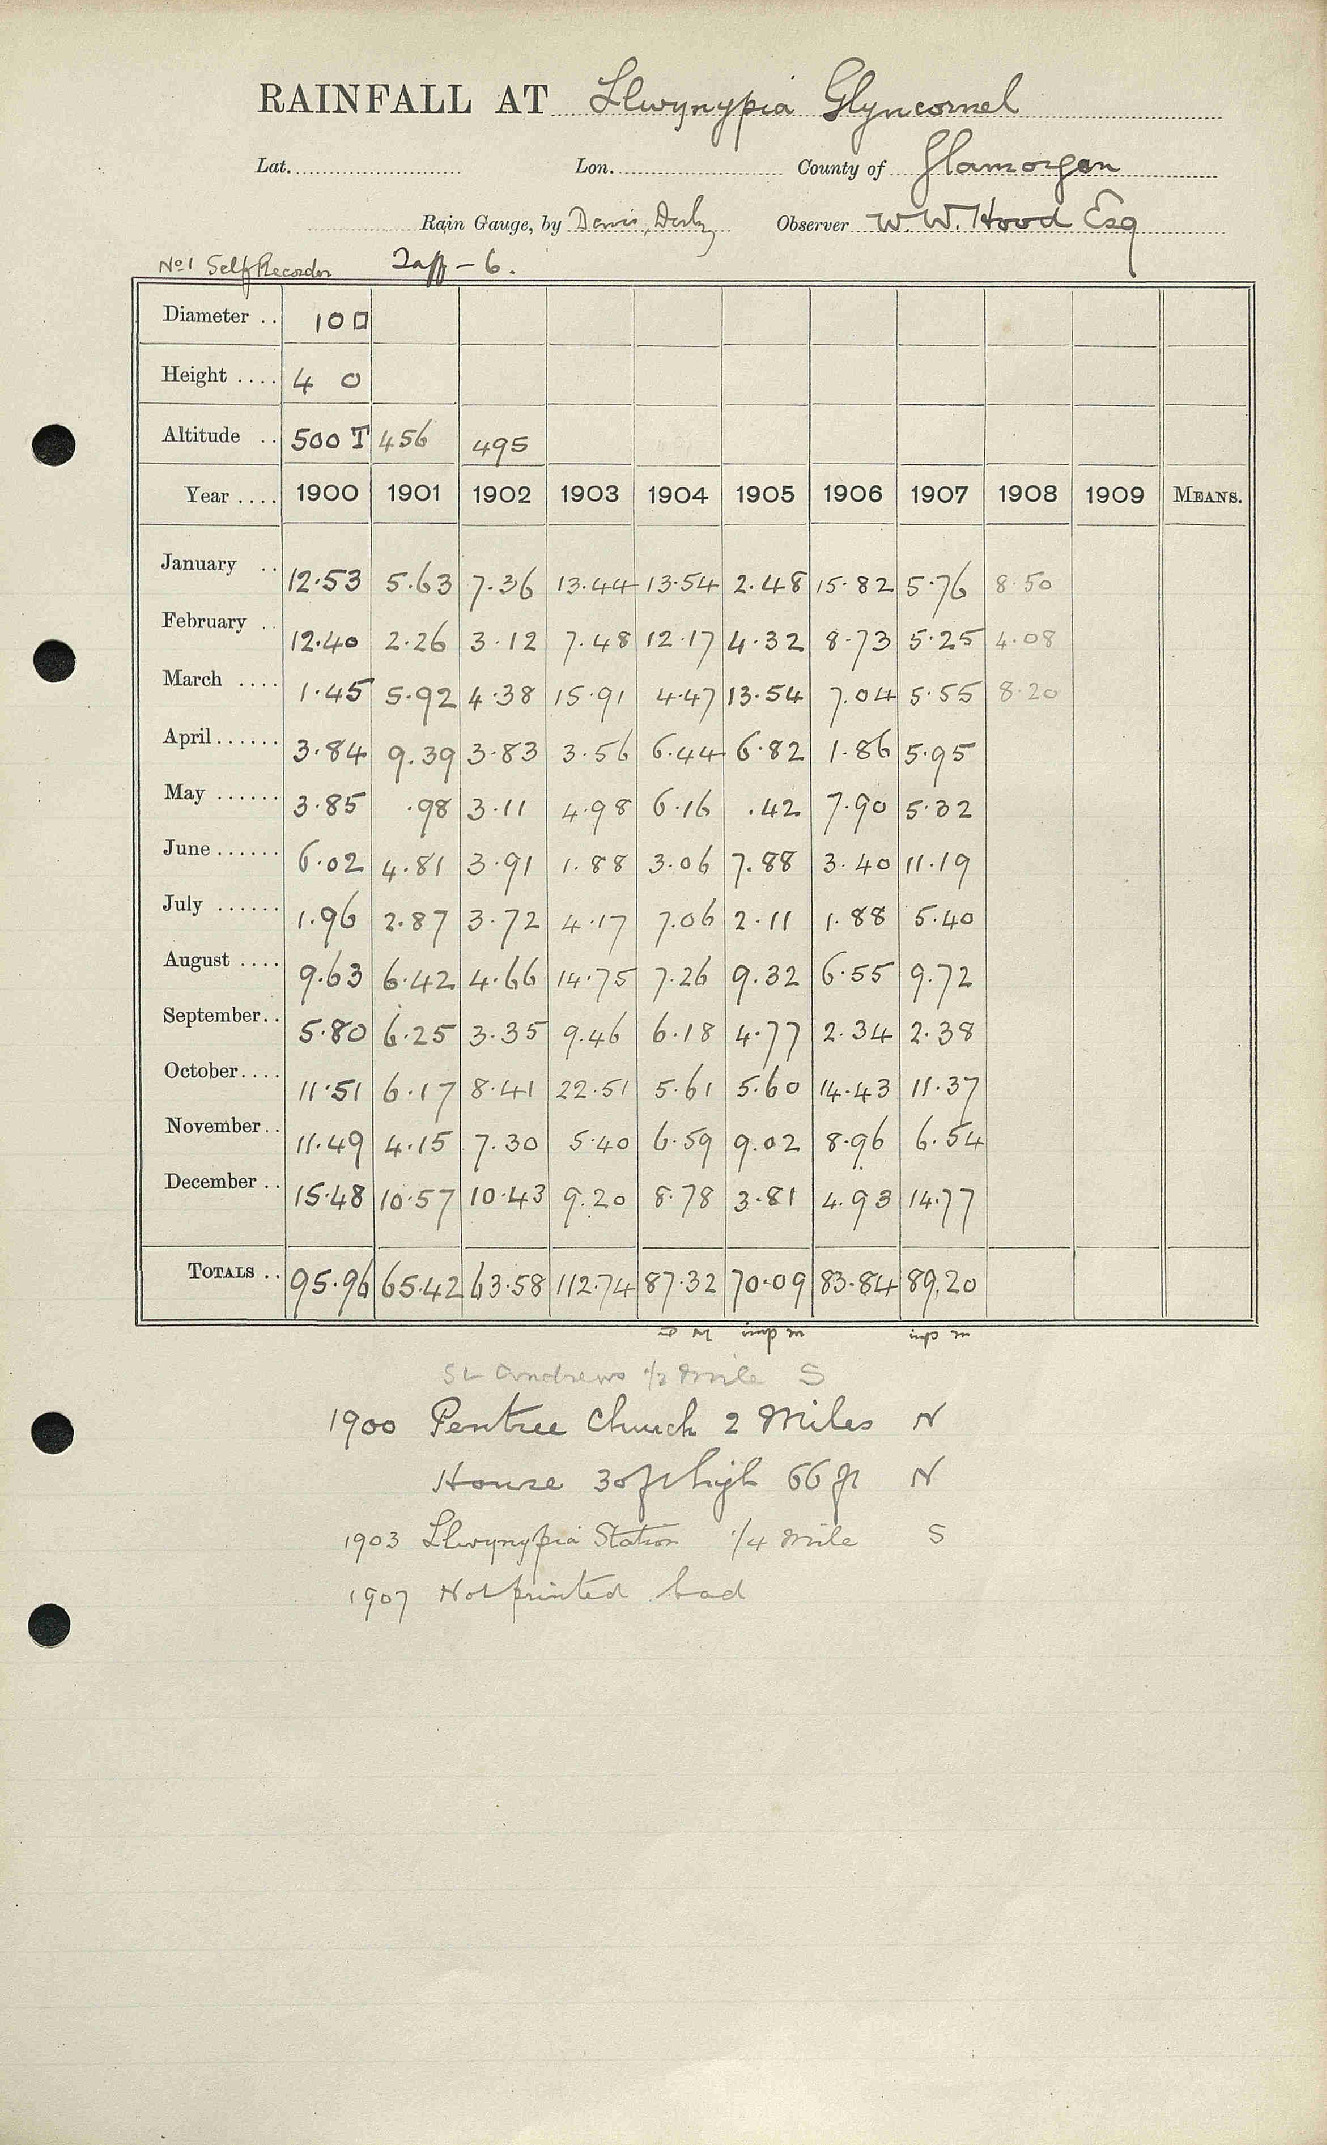 RAINFALL AT Llwynypia Glyncornel
Lat. Lon. County of Glamorgan
Rain Gauge, by Davis, Derby Observer W. W. Hood Esq
No 1 Self Recorder Taff - 6.
Diameter .. 10 □
Height .... 4 0
Altitude .. 500 T 456 495
Year .... 1900 1901 1902 1903 1904 1905 1906 1907 1908 1909 MEANS.
January .. 12.53 5.63 7.36 13.44 13.54 2.48 15.82 5.76 8.50
February .. 12.40 2.26 3.12 7.48 12.17 4.32 8.73 5.25 4.08
March .... 1.45 5.92 4.38 15.91 4.47 13.54 7.04 5.55 8.20
April...... 3.84 9.39 3.83 3.56 6.44 6.82 1.86 5.95
May ...... 3.85 .98 3.11 4.98 6.16 .42 7.90 5.32
June...... 6.02 4.81 3.91 1.88 3.06 7.88 3.40 11.19
July ...... 1.96 2.87 3.72 4.17 7.06 2.11 1.88 5.40
August .... 9.63 6.42 4.66 14.75 7.26 9.32 6.55 9.72
September.. 5.80 6.25 3.35 9.46 6.18 4.77 2.34 2.38
October.... 11.51 6.17 8.41 22.51 5.61 5.60 14.43 11.37
November.. 11.49 4.15 7.30 5.40 6.59 9.02 8.96 6.54
December .. 15.48 10.57 10.43 9.20 8.78 3.81 4.93 14.77
TOTALS .. 95.96 65.42 63.58 112.74 87.32 70.09 83.84 89.20
imp m inp m
St Andrews 1/2 Mile S
1900 Pentree Church 2 Miles N
House 30ft high 66 ft N
1903 Llwynypia Station 1/4 Mile S
1907 Not printed bad